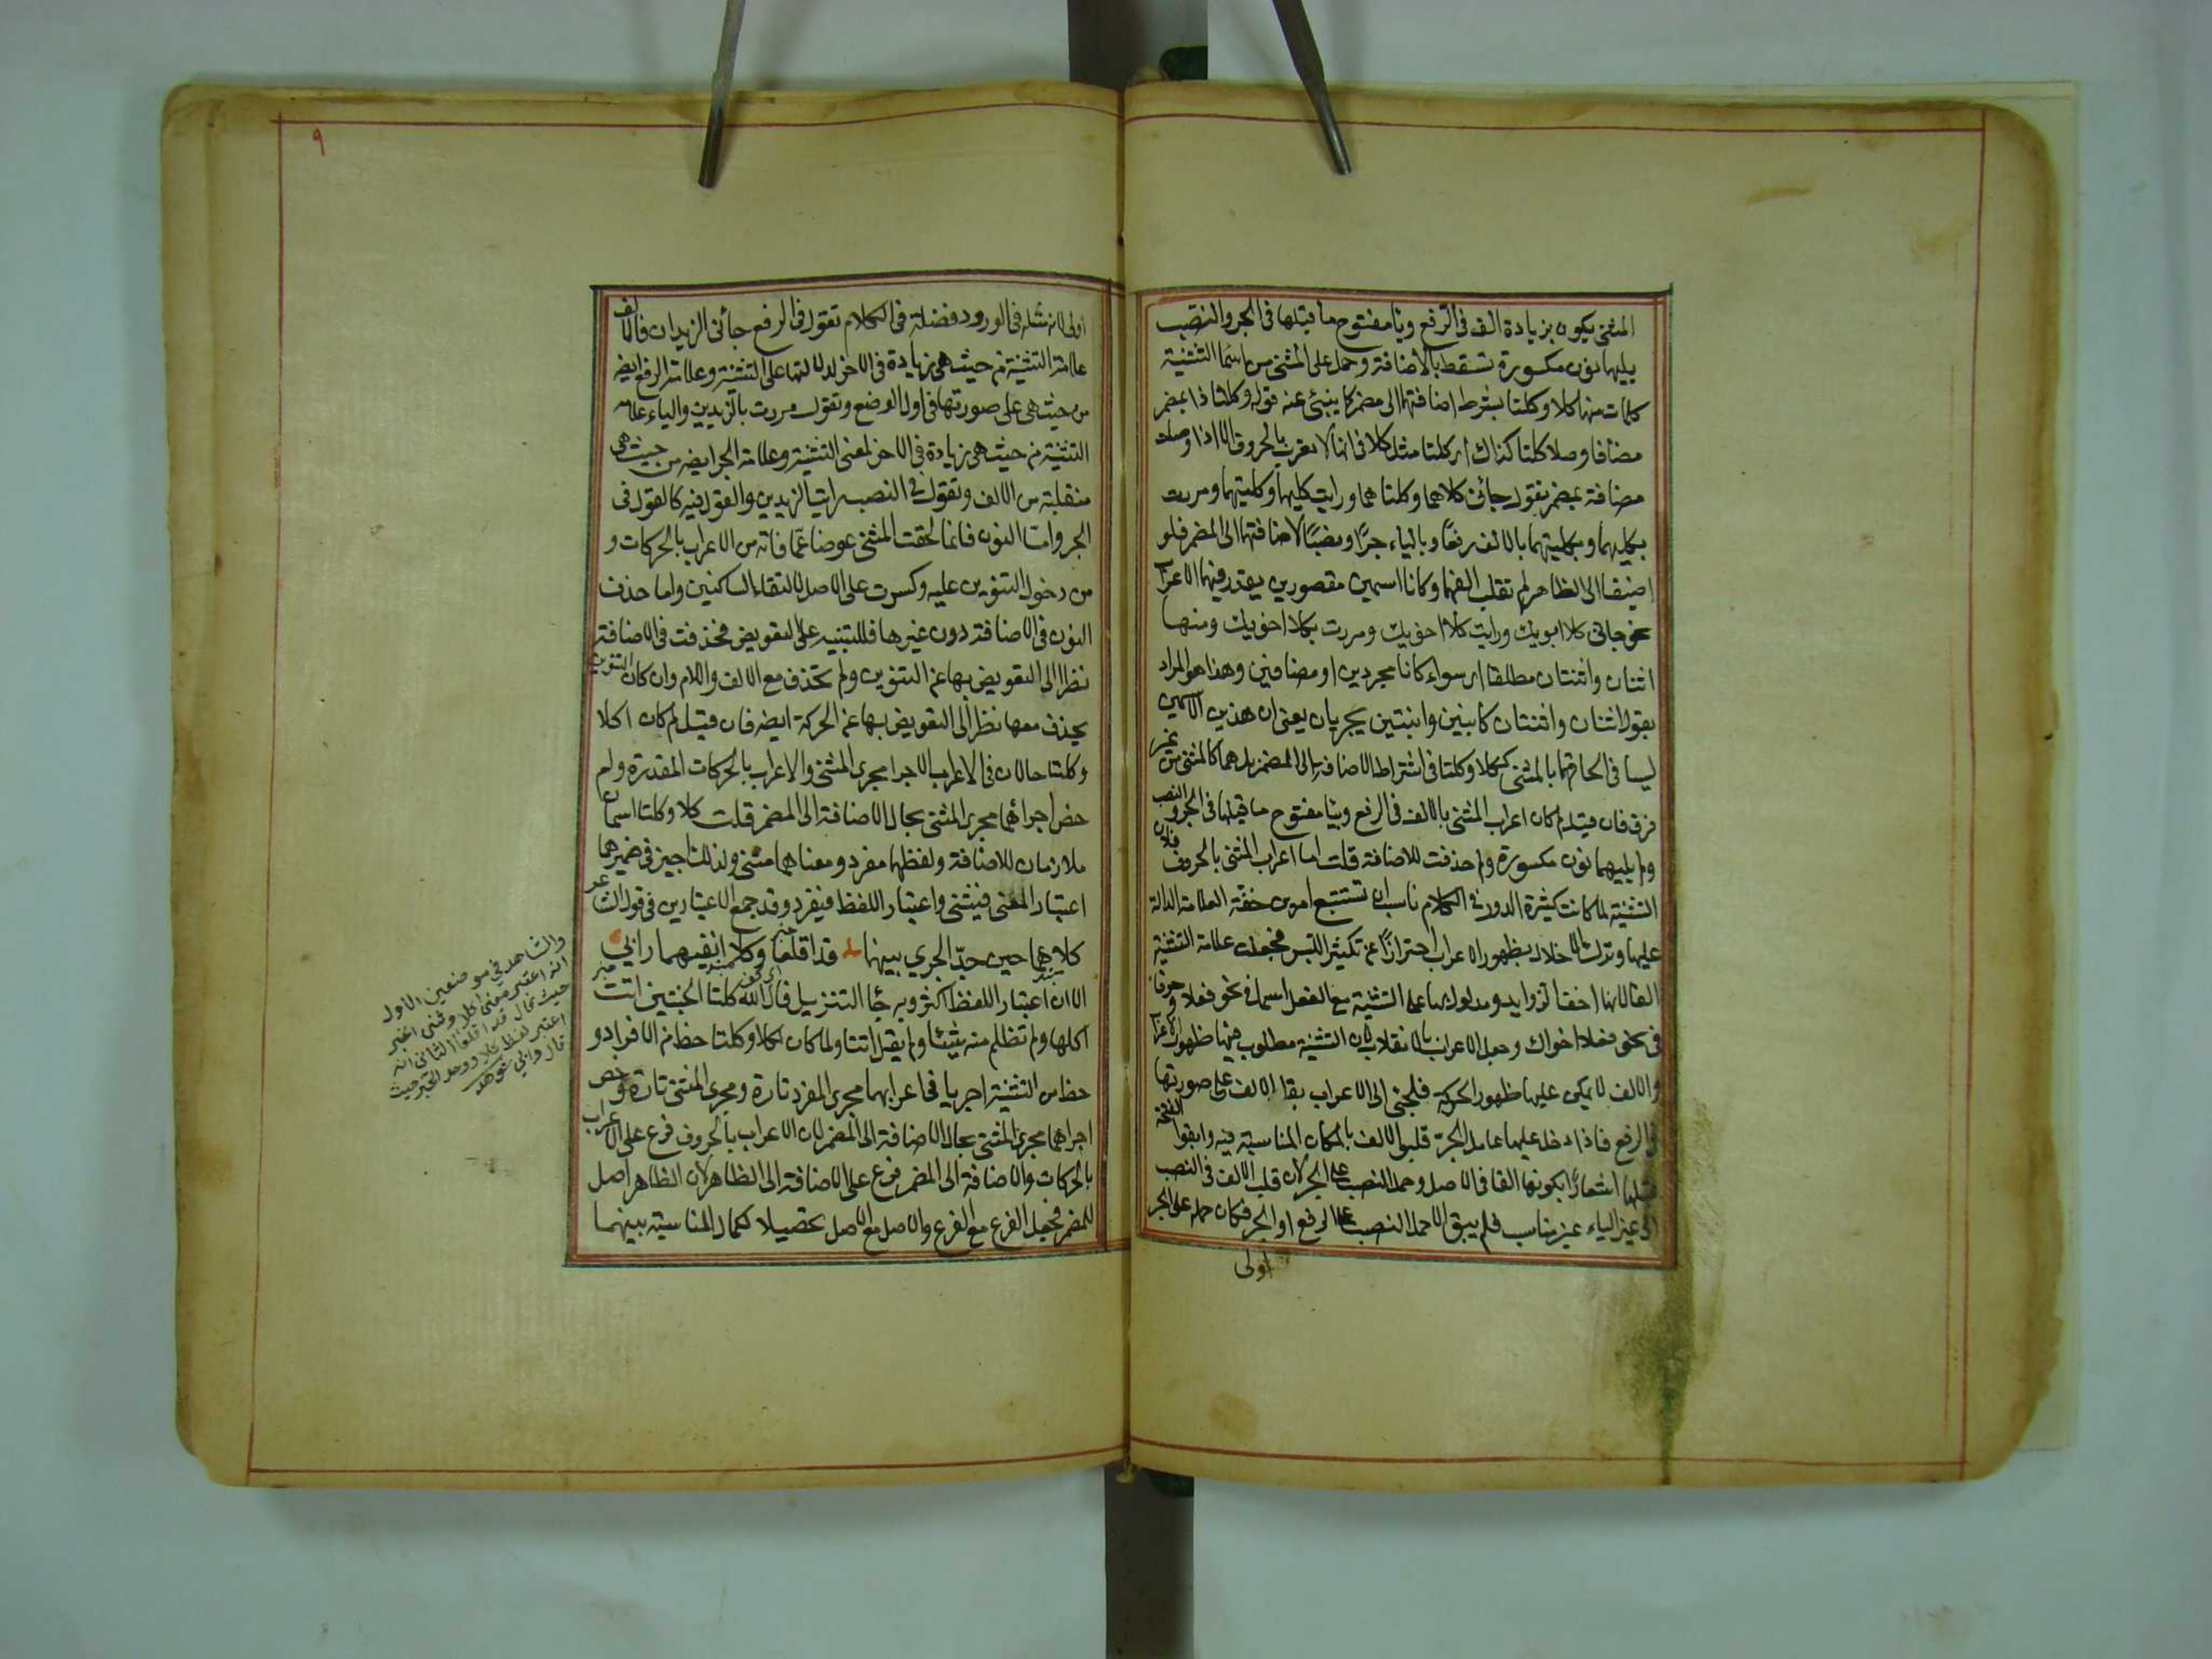 المثنى يكون بزيادة الف فى الرفع ويا مفتوح ما قبلها فى الجر والنصب
يليهما نون مكسورة تسقط بالاضافة وحمل على المثنى من اسما التثنية
كلمات منها كلا وكلتا بشرط اضافتهما الى مضمر كما ينبئ عنه قوله وكلتا اذا بمضمر
مضافا وصلا كلتا كذاك اى كلتا مثل كلا فى انها لا تعرب بالحروف الا اذا وصلت
مضافة بمضمر تقول جائنى كلاهما وكلتاهما ورايت كليهما وكلتيهما ومررت
بكليهما وبكلتيهما بالالف رفعًا وبالياء جرًا ونصبًا لاضافتهما الى المضمر فلو
اضيفا الى الظاهر لم تقلب الفهما وكانا اسمين مقصورين يقدر فيهما الاعراب
نحو جائنى كلا ابويك ورايت كلا اخويك ومررت بكلا اخويك ومنها
اثنان واثنتان مطلقا اى سواء كانا مجردين او مضافين وهذا هو المراد
بقوله اثنان واثنتان كابنين وابنتين يجريان يعنى ان هذين الاسمين
ليسا فى الحاقهما بالمثنى ككلا وكلتا فى اشتراط الاضافة الى المضمر بل هما كالمثنى من غير
فرق فان قيل لم كان اعراب المثنى بالالف فى الرفع وبيا مفتوح ما قبلها فى الجر والنصب
ولم يليهما نون مكسورة ولم حذفت للاضافة قلت اما اعراب المثنى بالحروف فلان
التثنية لما كانت كثيرة الدور فى الكلام ناسب ان تستتبع امرين خفة العلامة الدالة
عليها وترك الاخلال بظهور الاعراب احترازًا عن تكثير اللبس فجعلت علامة التثنية
الفا لانها اخف الزوايد ومدلول بها على التثنية مع الفعل اسما فى نحو فعلا وحرفا
فى نحو فعلا اخواك وجعل الاعراب بالانقلاب لان التثنية مطلوب فيها ظهور الاعراب
والالف لا يمكن عليها ظهور الحركة فلجئ الى الاعراب بقا الالف على صورتها
فى الرفع فاذا دخل عليها عامل الجرّ قلبوا الالف بالمكان المناسبة فيه وابقوا الفتحة
قبلها اشعارًا بكونها الفا فى الاصل وحمل النصب على الجر لان قلب الالف فى النصب
الى غير الياء غير مناسب فلم يبق الا حمل النصب على الرفع او الجر فكان حمله على الجر
اولى
٩
اولى لانه مثله فى الورود فضلة فى الكلام تقول فى الرفع جائنى الزيدان فالالف
علامة التثنية من حيث هى زيادة فى الاخر لدلالتها على التثنية وعلامة الرفع ايضه
من حيث هى على صورتها فى اول الوضع وتقول مررت بالزيدين والياء علامة
التثنية من حيث هى زيادة فى الاخر لمعنى التثنية وعلامة الجر ايضه من حيث هى
منقلبة من الالف وتقول فى النصب رايت الزيدين والقول فيه كالقول فى
الجر وامّا النون فانما لحقت المثنى عوضا عمّا فاته من الاعراب بالحركات و
من دخول التنوين عليه وكسرت على الاصل لالتقاء الساكنين واما حذف
النون فى الاضافة دون غيرها فللتنبيه على التعويض فحذفت فى الاضافة
نظرا الى التعويض بها عن التنوين ولم تحذف مع الالف واللام وان كان التنوين
يحذف معها نظرا الى التعويض بها عن الحركة ايضه فان قيل لم كان لكلا
وكلتا حالان فى الاعراب الاجرا مجرى المثنى والاعراب بالحركات المقدرة ولم
خص اجرائهما مجرى المثنى بحال الاضافة الى المضمر قلت كلا وكلتا اسمان
ملازمان للاضافة ولفظهما مفرد ومعناهما مثنى ولذلك اجيز فى ضميرهما
اعتبار المعنى فيثنى واعتبار اللفظ فيفرد وقد جمع الاعتبارين فى قول الشاعر
كلاهما حين جدّ الجري بينهما قد اقلعا وكلا انفيهما رابي
الا ان اعتبار اللفظ اكثر وبه جأ التنزيل قال الله كلتا الجنتين اتت
اكلها ولم تظلم منه شيئا ولم يقل اتتا ولما كان لكلا وكلتا حظ من الافراد و
حظ من التثنية اجريا فى اعرابهما مجرى المفرد تارة ومجرى المثنى تارة وخص
اجراهما مجرى المثنى بحال الاضافة الى المضمر لان الاعراب بالحروف فرع على الاعراب
بالحركات والاضافة الى المضمر فرع على الاضافة الى الظاهر لان الظاهر اصل
للمضمر فجعل الفرع مع الفرع والاصل مع الاصل تحصيلا لكمال المناسبة بينهما
والشاهد في موضعين الاول
انه اعتبر معنى كلا وثنى الخبر
حيث قال قد اقلعا الثاني انه
اعتبر لفظ كلا ووحد الخبر حيث
قال رابي